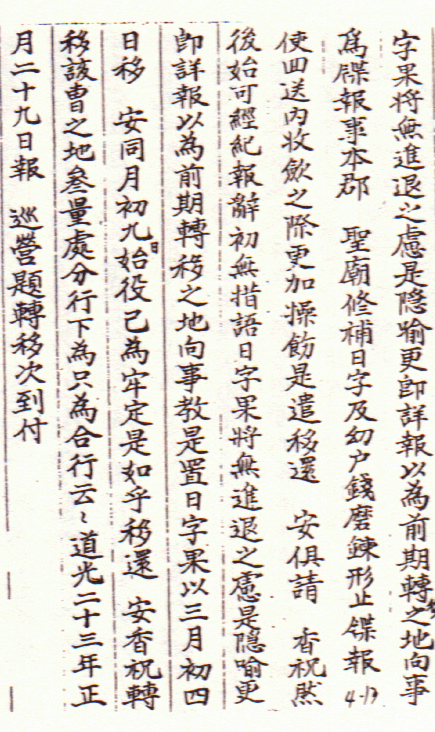 字果將無進退之慮是隐喻更卽詳報以為前期轉移之地向事
爲牒報事本郡 聖廟修補日字及幼戶錢磨鍊形止牒報
4-17
使回送內收斂之際更加操飭是遣移還 安俱請 香祝然
後始可經紀報辭初無指語日字果將無進退之慮是隐喻更
卽詳報以為前期轉移之地向事教是置日字果以三月初四
日移 安同月初九日始役已為牢定是如乎移還 安香祝轉
移該曹之地叅量處分行下為只為合行云〻道光二十三年正
月二十九日報 巡營題轉移次到付